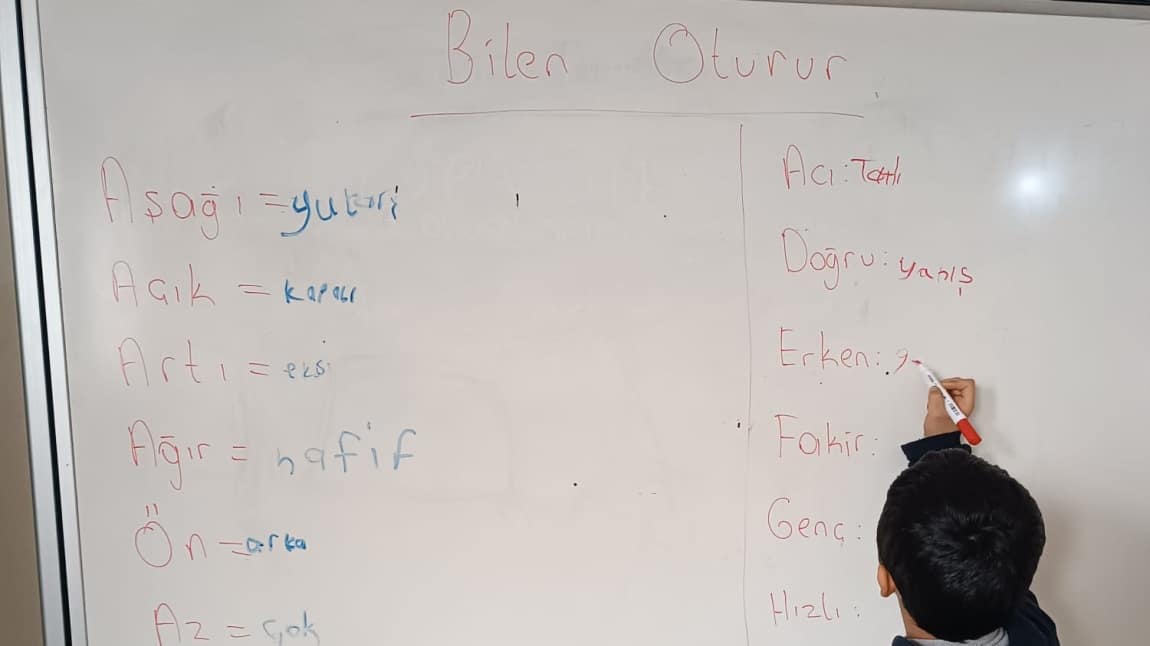 Bilen Oturur
Aşağı = yukarı
Açık = kapalı
Artı = eksi
Ağır = hafif
Ön = arka
Az = çok
Acı: Tatlı
Doğru: yanış
Erken: g
Fakir:
Genç:
Hızlı: